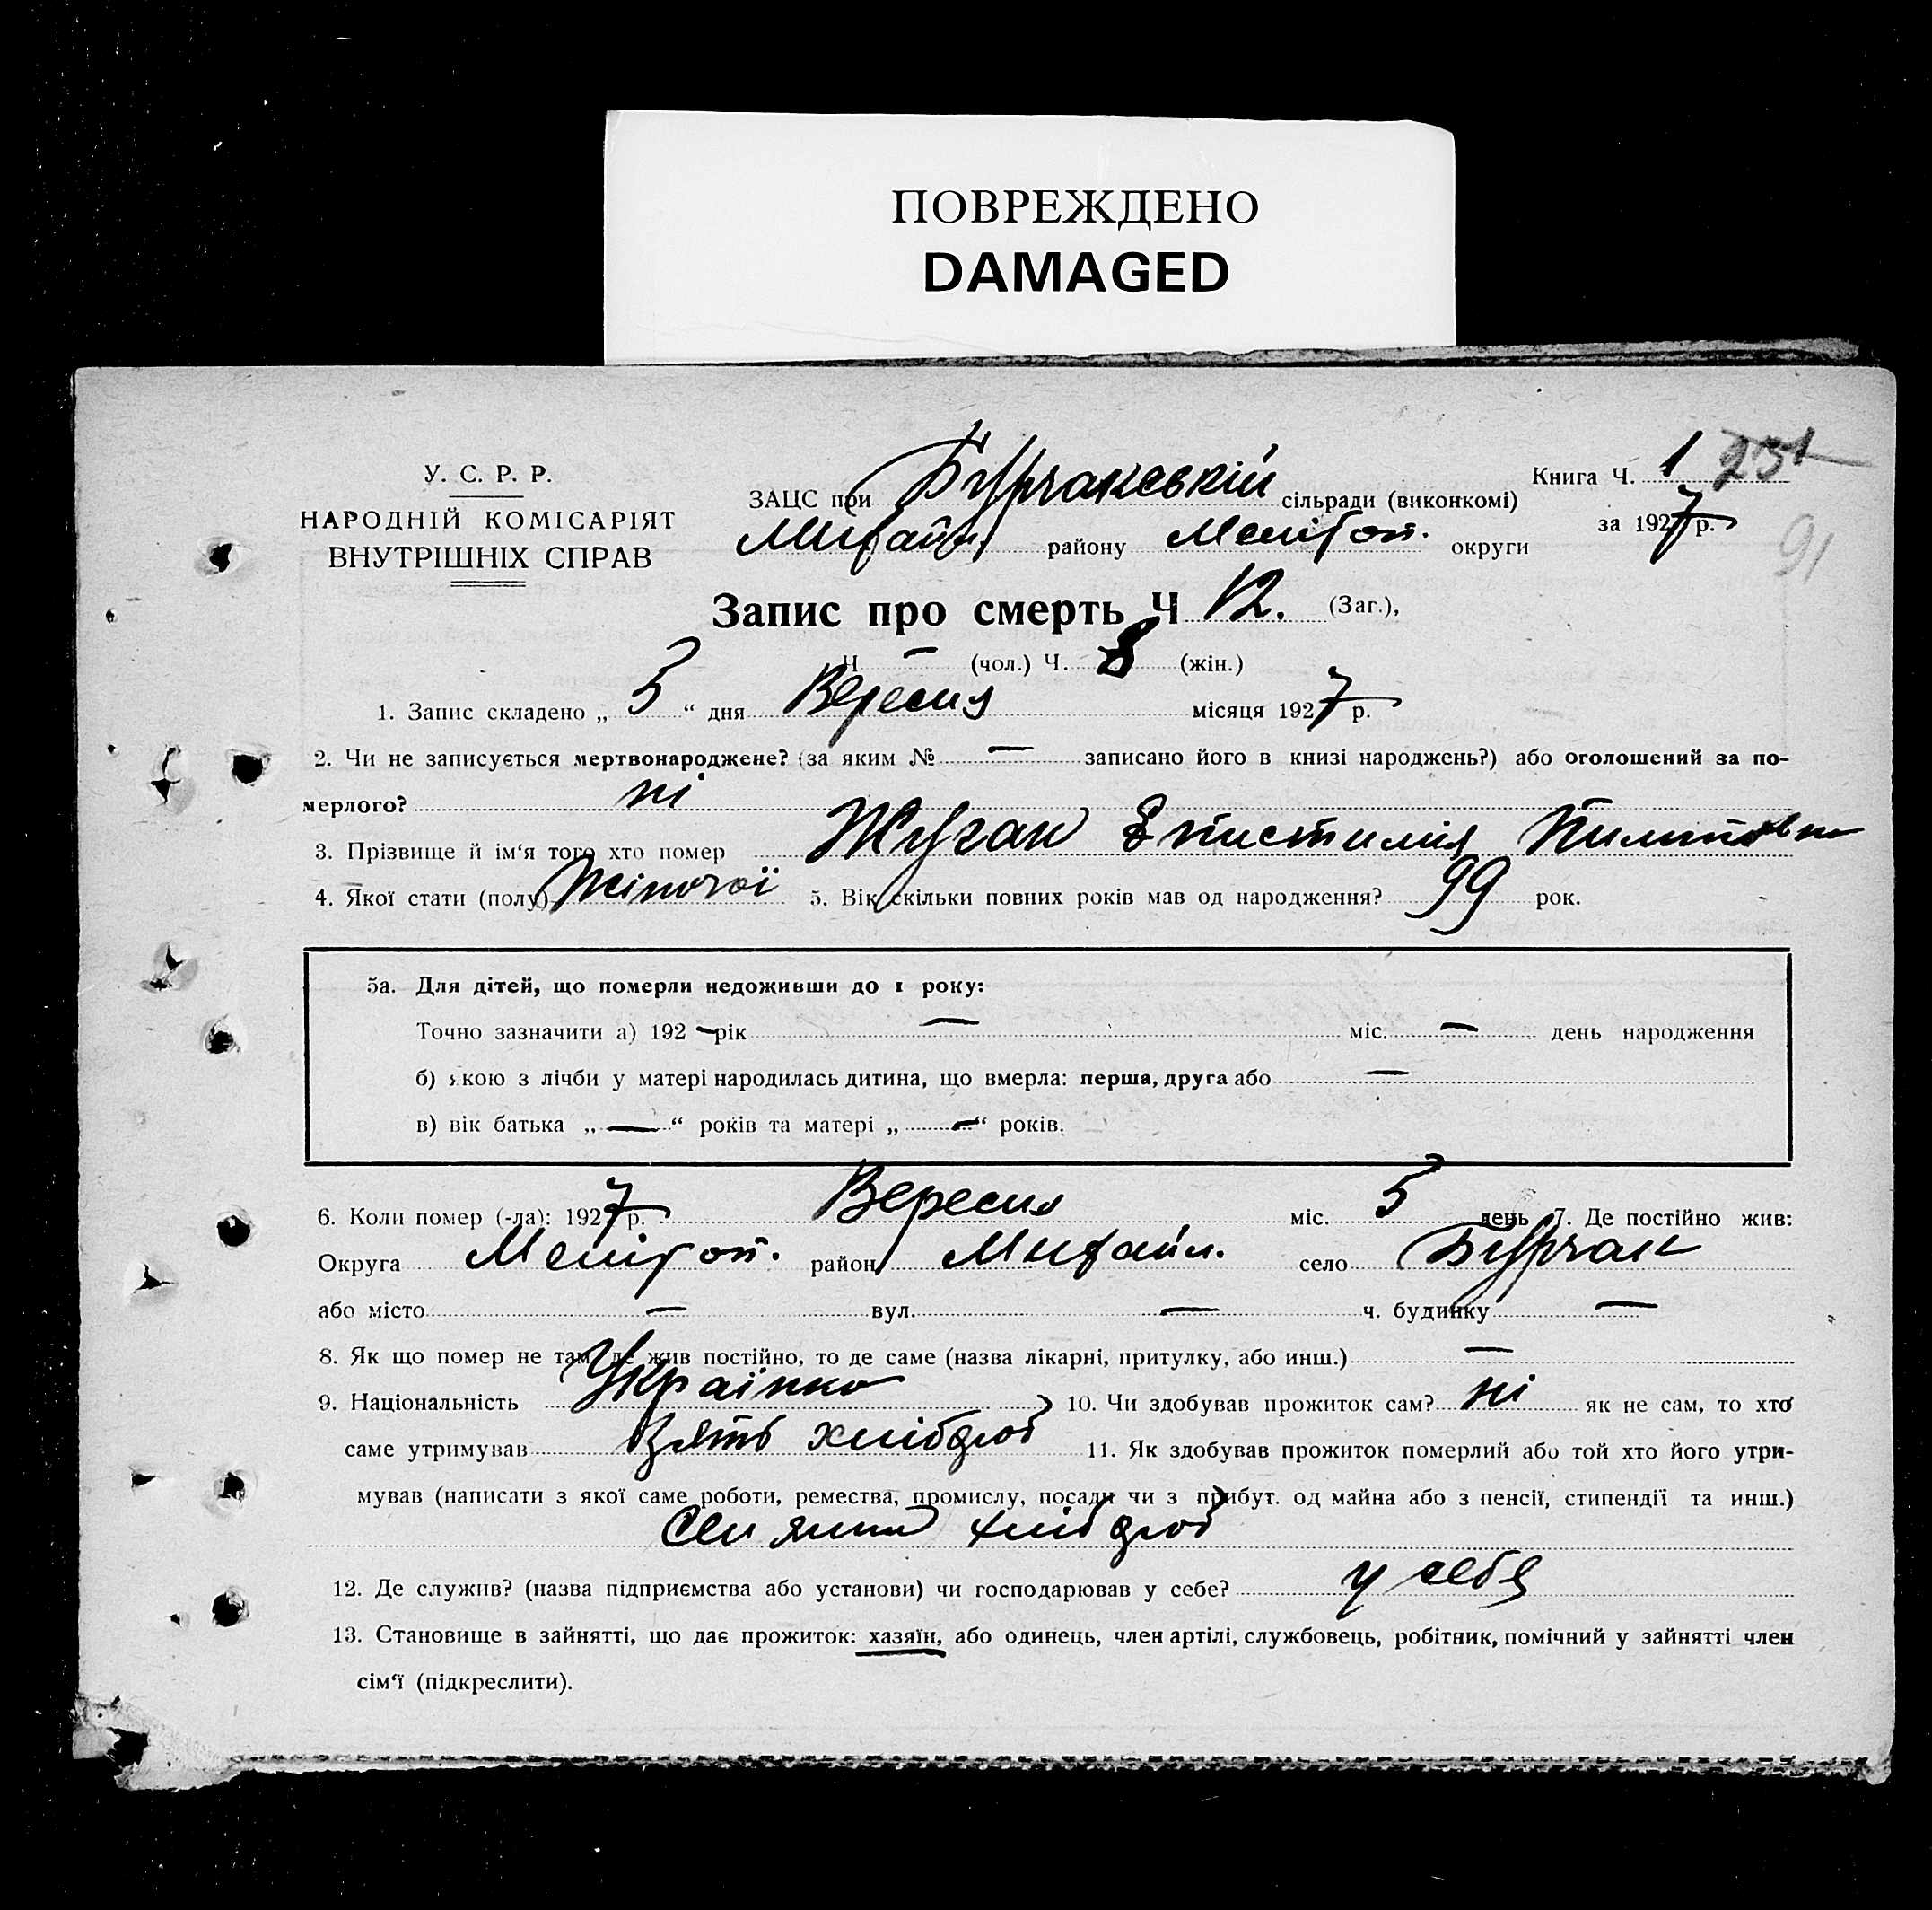 ПОВРЕЖДЕНО
DAMAGED
У. С. Р. Р.
НАРОДНІЙ КОМІСАРІЯТ
ВНУТРІШНІХ СПРАВ
ЗАЦС при Бурчаксьвкій сільради (виконкомі)
Михайл. району Меліт оп. округи
Книга Ч. 1 231
за 1927 р.
91
Запис про смерть Ч 12. (Заг.),
Ч — (чол.) Ч. 8 (жін.)
1. Запис складено „ 5 “ дня Вересня місяця 1927 р.
2. Чи не записується мертвонароджене? (за яким № — записано його в книзі народжень?) або оголошений за по-
мерлого? ні
3. Прізвище й ім‘я того хто помер Жуган Епистимія Пилиповна
4. Якої статі (полу) жіночої 5. Вік скільки повних років мав од народження? 99 рок.
5а. Для дітей, що померли недоживши до 1 року:
Точно зазначити а) 192 — рік — міс. — день народження
б) якою з лічби у матері народилась дитина, що вмерла: перша, друга або —
в) вік батька „ — “ років та матері „ — “ років.
6. Коли помер (-ла): 1927 р. Вересня міс. 5 день 7. Де постійно жив:
Округа Меліт оп. район Михайл. село Бурчак
або місто — вул. — ч. будинку —
8. Як що помер не там, де жив постійно, то де саме (назва лікарні, притулку, або инш.) —
9. Національність Українка 10. Чи здобував прожиток сам? ні як не сам, то хто
саме утримував Зять хлібороб 11. Як здобував прожиток померлий або той хто його утри-
мував (написати з якої саме роботи, ремества, промислу, посади чи з прибут. од майна або з пенсії, стипендії та инш.)
Селянин хлібороб
12. Де служив? (назва підприємства або установи) чи господарював у себе? у себя
13. Становище в зайнятті, що дає прожиток: хазяїн, або одинець, член артілі, службовець, робітник, помічний у зайнятті член
сім‘ї (підкреслити).